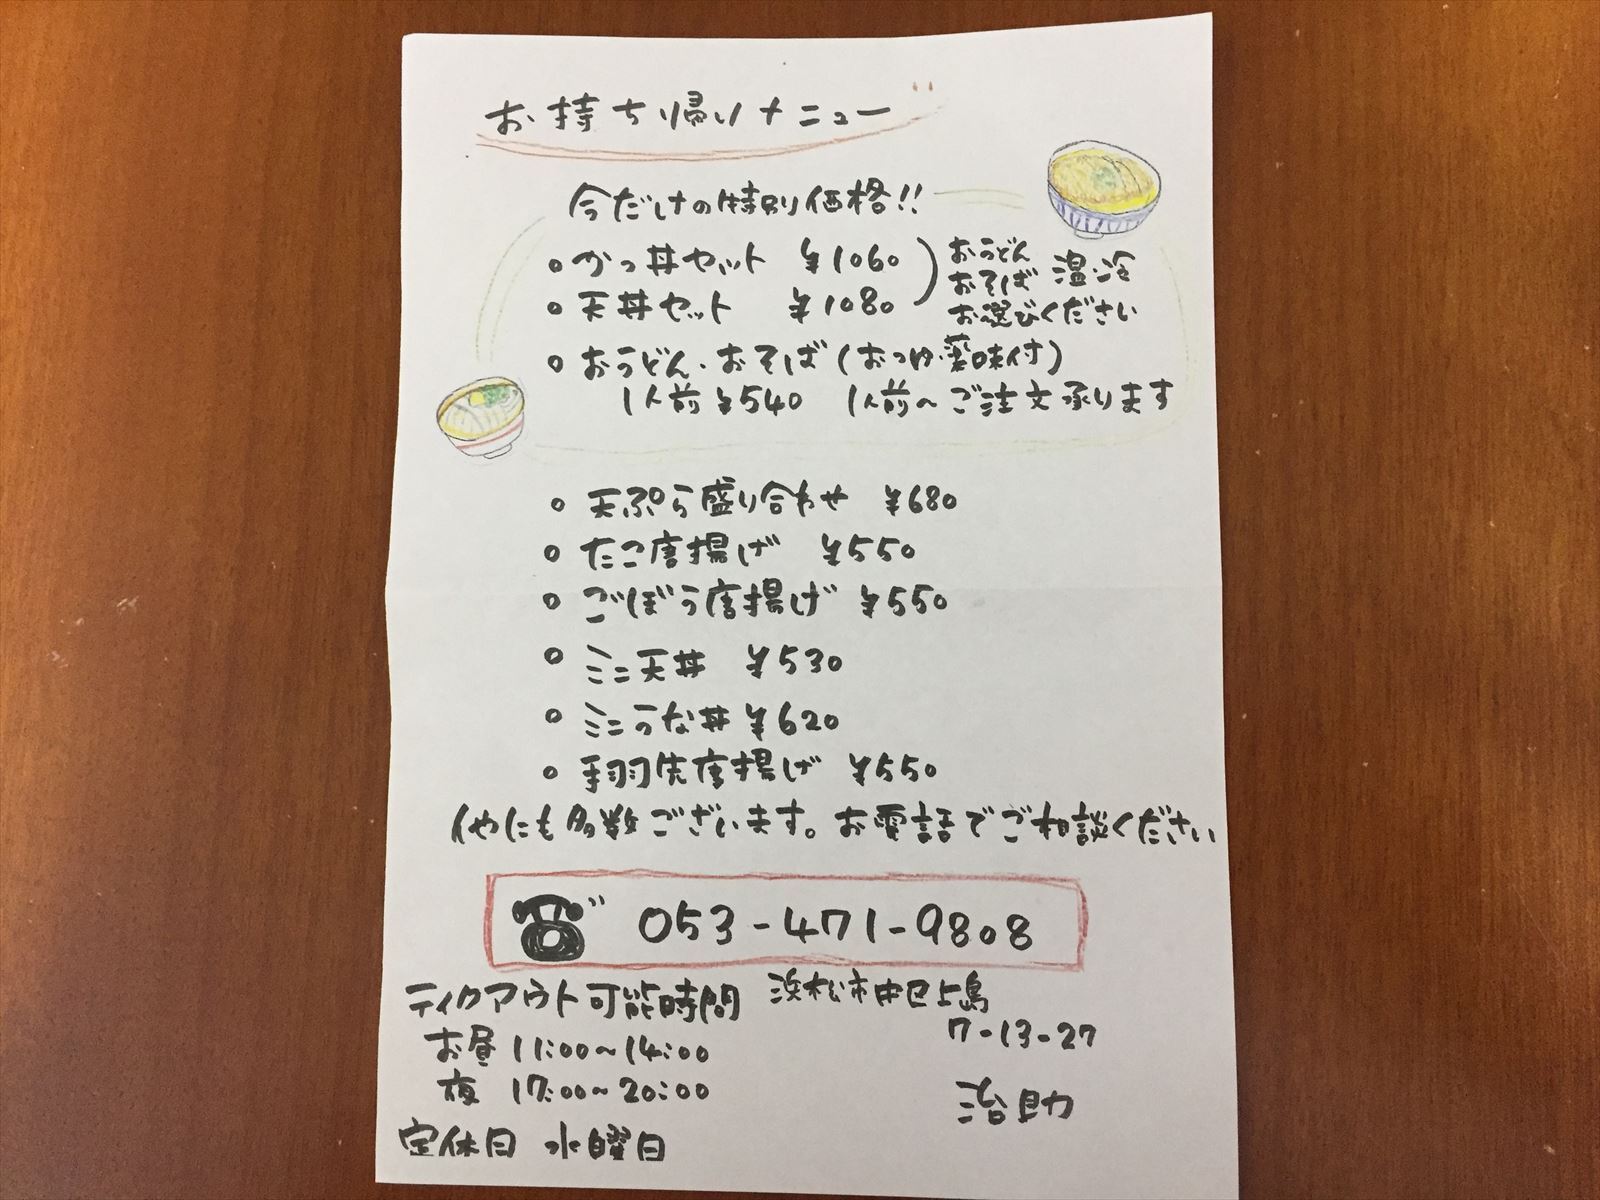 お持ち帰りメニュー
今だけの特別価格!!
○かつ丼セット ¥1060
○天丼セット ¥1080
おうどん
おそば 温・冷
お選びください
○おうどん・おそば(おつゆ・薬味付)
1人前¥540 1人前〜ご注文承ります
○天ぷら盛り合わせ ¥680
○たこ唐揚げ ¥550
○ごぼう唐揚げ ¥550
○ミニ天丼 ¥530
○ミニうな丼 ¥620
○手羽先唐揚げ ¥550
他にも多数ございます。お電話でご相談ください
053-471-9808
ティクアウト可能時間
お昼 11:00〜14:00
夜 17:00〜20:00
定休日 水曜日
浜松市中区上島
7-13-27
治助